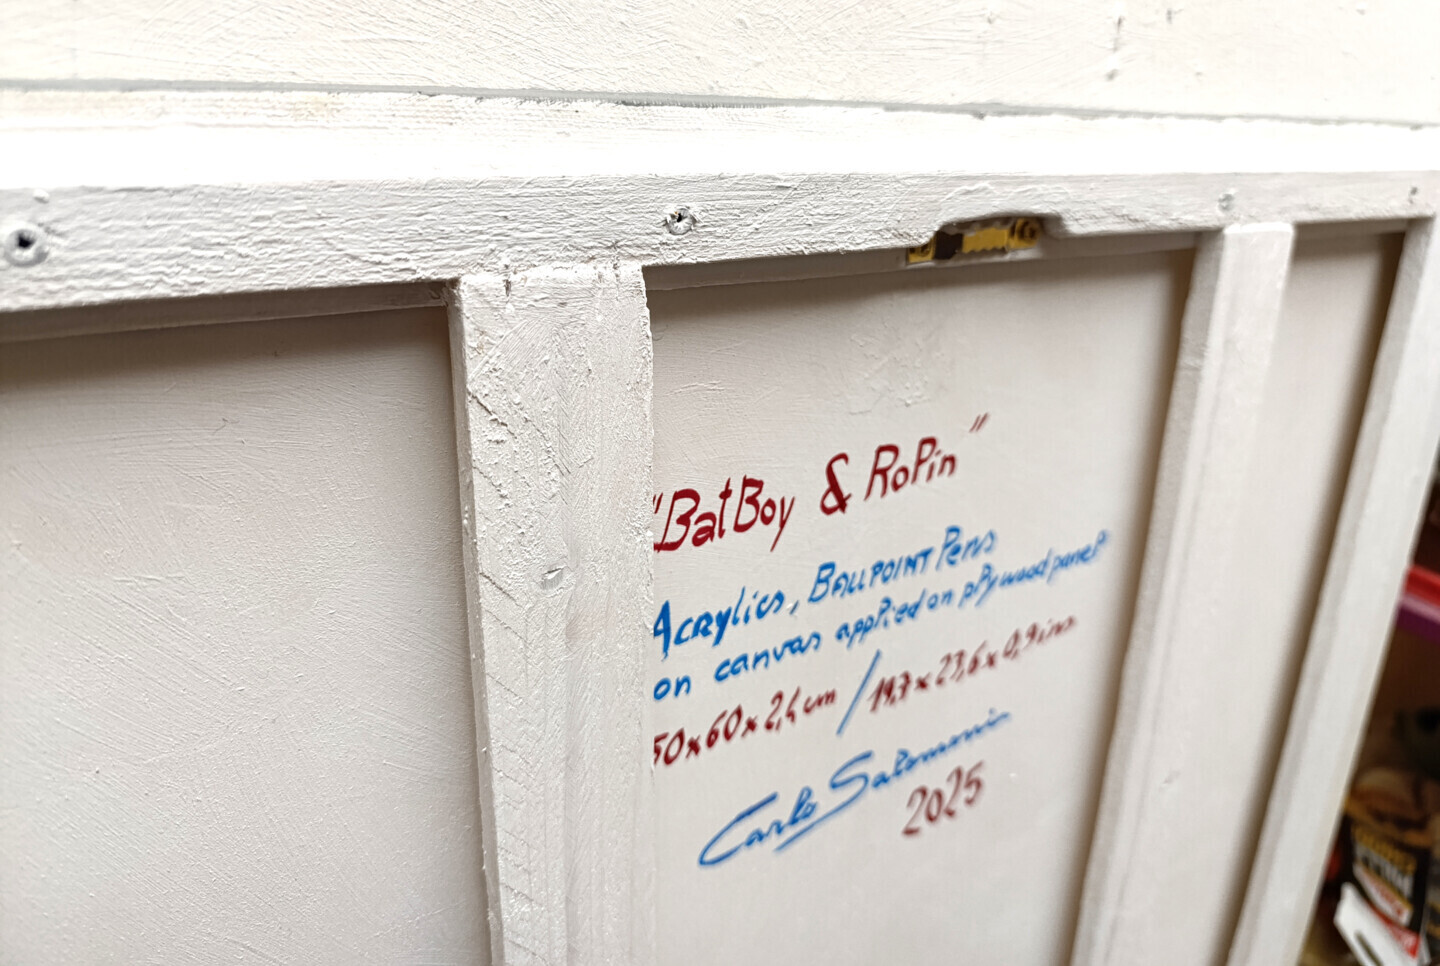 "BatBoy & RoPin"
Acrylics, BALLPOINT Pens
on canvas applied on plywood panel
50x60x2,4 cm / 19,7x23,6x0,9 ins
Carlo Salomoni
2025